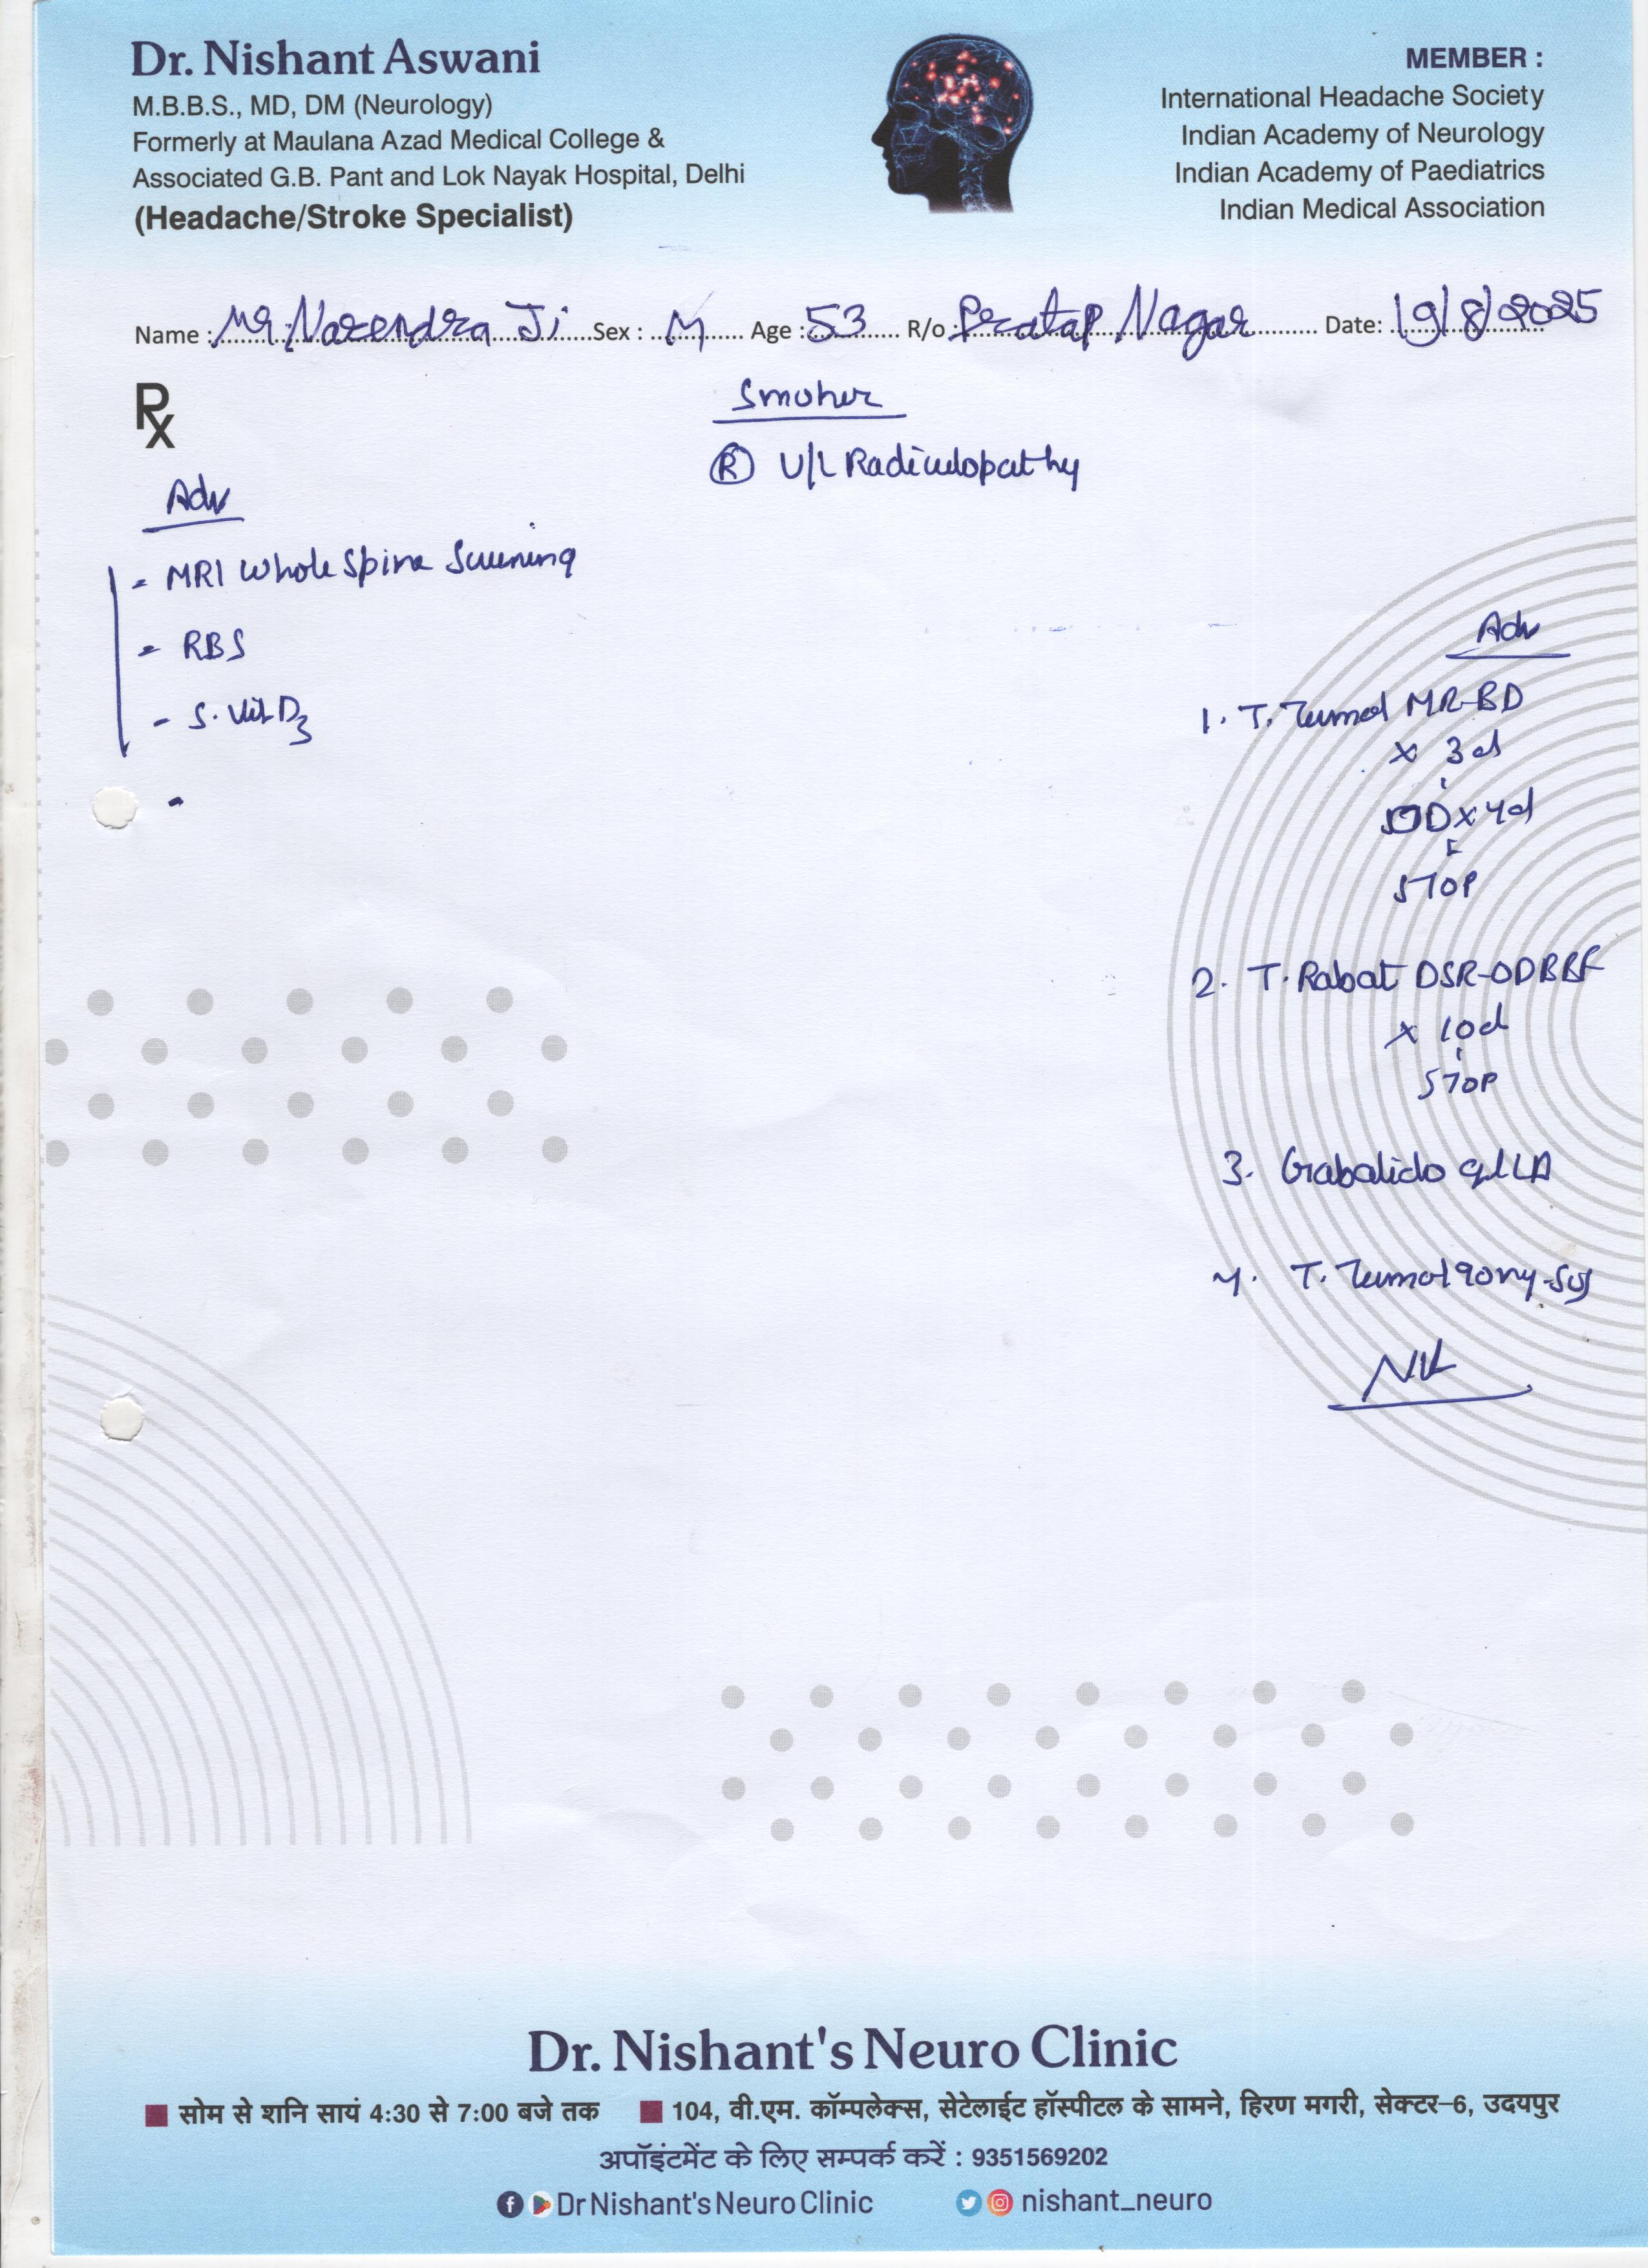 Dr. Nishant Aswani
M.B.B.S., MD, DM (Neurology)
Formerly at Maulana Azad Medical College &
Associated G.B. Pant and Lok Nayak Hospital, Delhi
(Headache/Stroke Specialist)
MEMBER :
International Headache Society
Indian Academy of Neurology
Indian Academy of Paediatrics
Indian Medical Association
Name : Mr. Narendra Ji Sex : M Age : 53 R/o : Pratap Nagar Date: 19/8/2025
Rx
Smoker
Ⓡ U/L Radiculopathy
Adv
- MRI Whole Spine Screening
- RBS
- S. Vit D3
-
Adv
1. T. MR-BD
x 3d
OD x 4d
STOP
2. T. Rabat DSR-ODBBF
x 10d
STOP
3. Gabalido LA
4. T. 90mg-SOS
Dr. Nishant's Neuro Clinic
सोम से शनि सायं 4:30 से 7:00 बजे तक
104, वी.एम. कॉम्पलेक्स, सेटेलाईट हॉस्पीटल के सामने, हिरण मगरी, सेक्टर-6, उदयपुर
अपॉइंटमेंट के लिए सम्पर्क करें : 9351569202
Dr Nishant's Neuro Clinic nishant_neuro